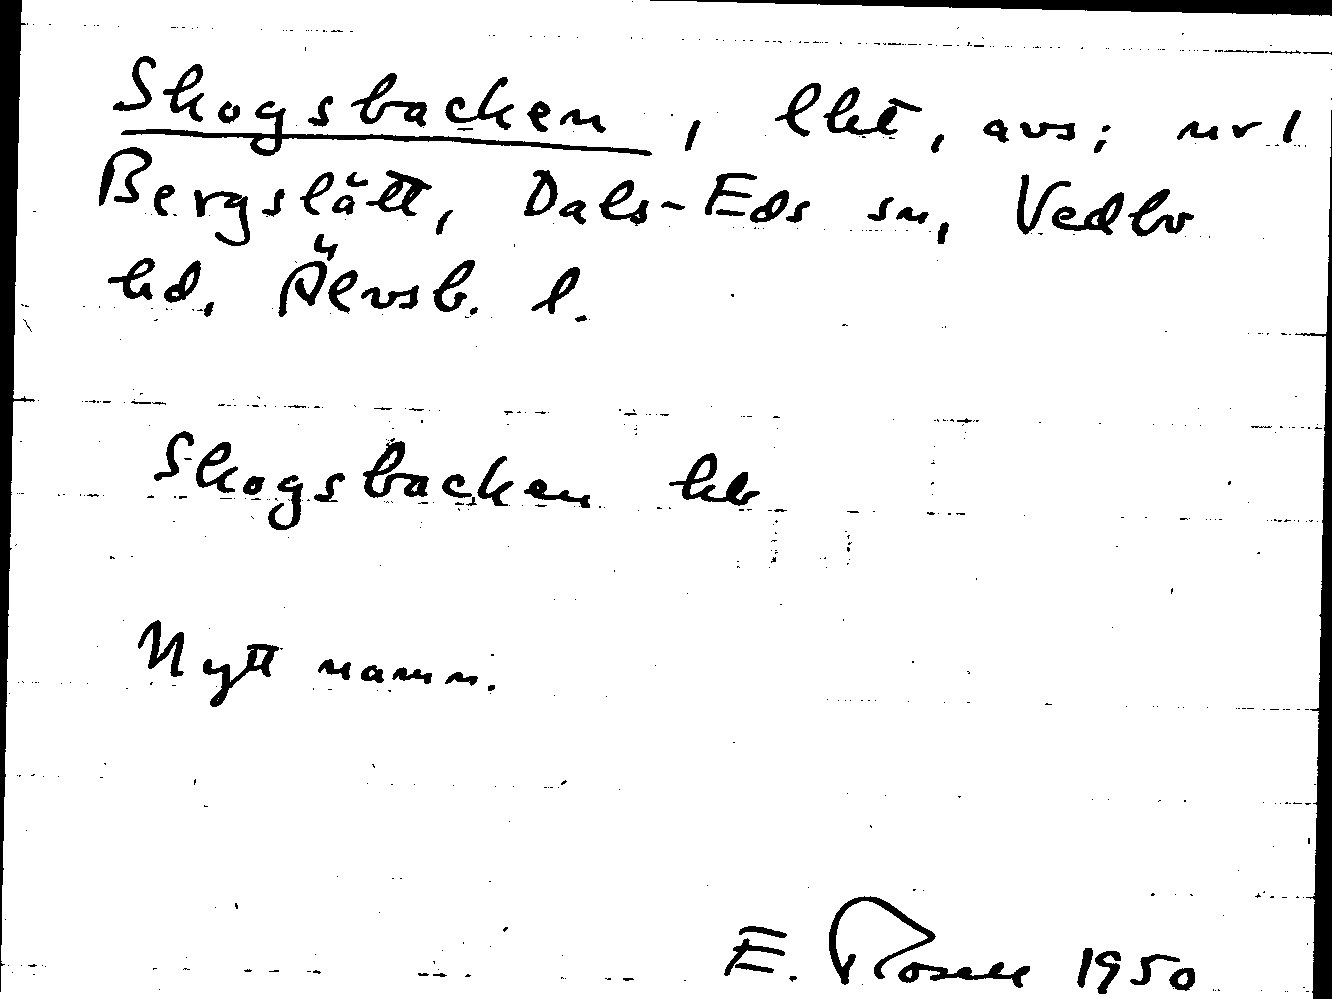 Skogsbacken, lht, avs; nr 1
Bergslätt, Dals-Eds sn, Vedbo
hd, Älvsb. l.
Skogsbacken
Nytt namn.
E. Rosell 1950